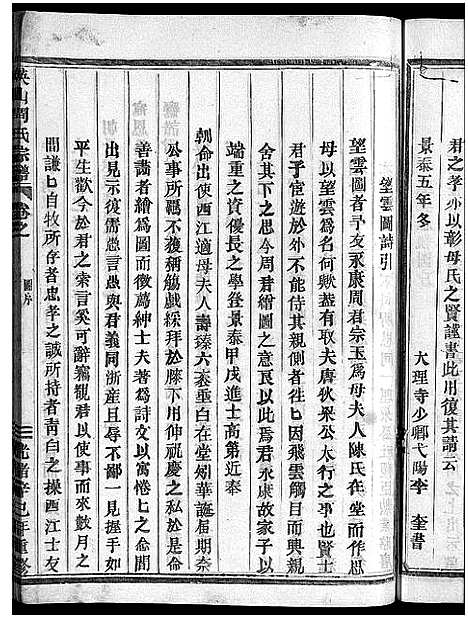 君之孝亦以彰母氏之賢謹書此用復其請云
景泰五年冬　大理寺少卿弋陽李　奎書
望雲圖詩引
望雲圖者予友永康周君宗玉爲母夫人陳氏在堂而作思
母以望雲爲名何歟蓋有取夫唐狄梁公太行之事也賢士
君子宦遊於彼不得侍其親側者曷巳因飛雲觸目而興親
舍其下之思今周君繪圖之意良以此焉君永康故家子以
端重之資優長之學登景泰甲戌進士高第近奉
朝命出使西江適母夫人壽臻六袠垂白在堂勿華誕届期奈
公事所羈不獲稱觴戲綵拜於膝下用伸祝慶之私於是求
善畫者繪爲圖而徵薦紳士夫著爲詩文以寓惓匕之念間
出見示復需愚言愚與君義同浙產且辱不鄙一見握手如
平生歡今於君之索言奚可辭竊觀君以使事而來數月之
間謙匕自牧所存者忠孝之誠所持者靑白之操西江士友
英山周氏宗譜　卷之　圖序　光緒辛巳年重修